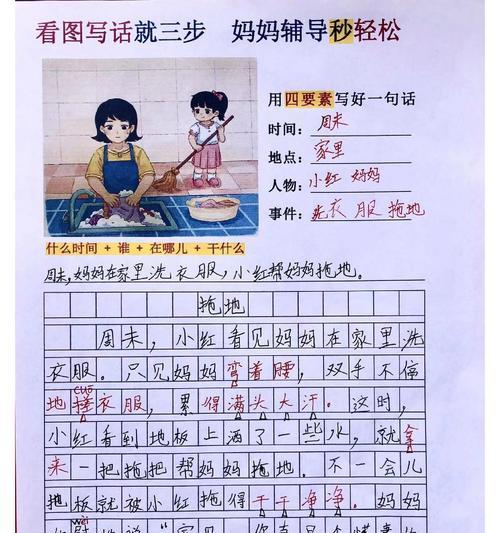 看图写话就三步 妈妈辅导秒轻松
用四要素写好一句话
时间：周末
地点：家里
人物：小红 妈妈
事件：洗衣服 拖地
什么时间 + 谁 + 在哪儿 + 干什么
周末，妈妈在家里洗衣服，小红帮妈妈拖地。
拖地
周末，小红看见妈妈在家里洗
衣服。只见妈妈弯着腰，双手不停
cuō
地搓衣服，累得满头大汗。这时，
小红看到地板上洒了一些水，就拿
来一把拖把帮妈妈拖地。不一会儿
地板就被小红拖得干干净净。妈妈
wèi